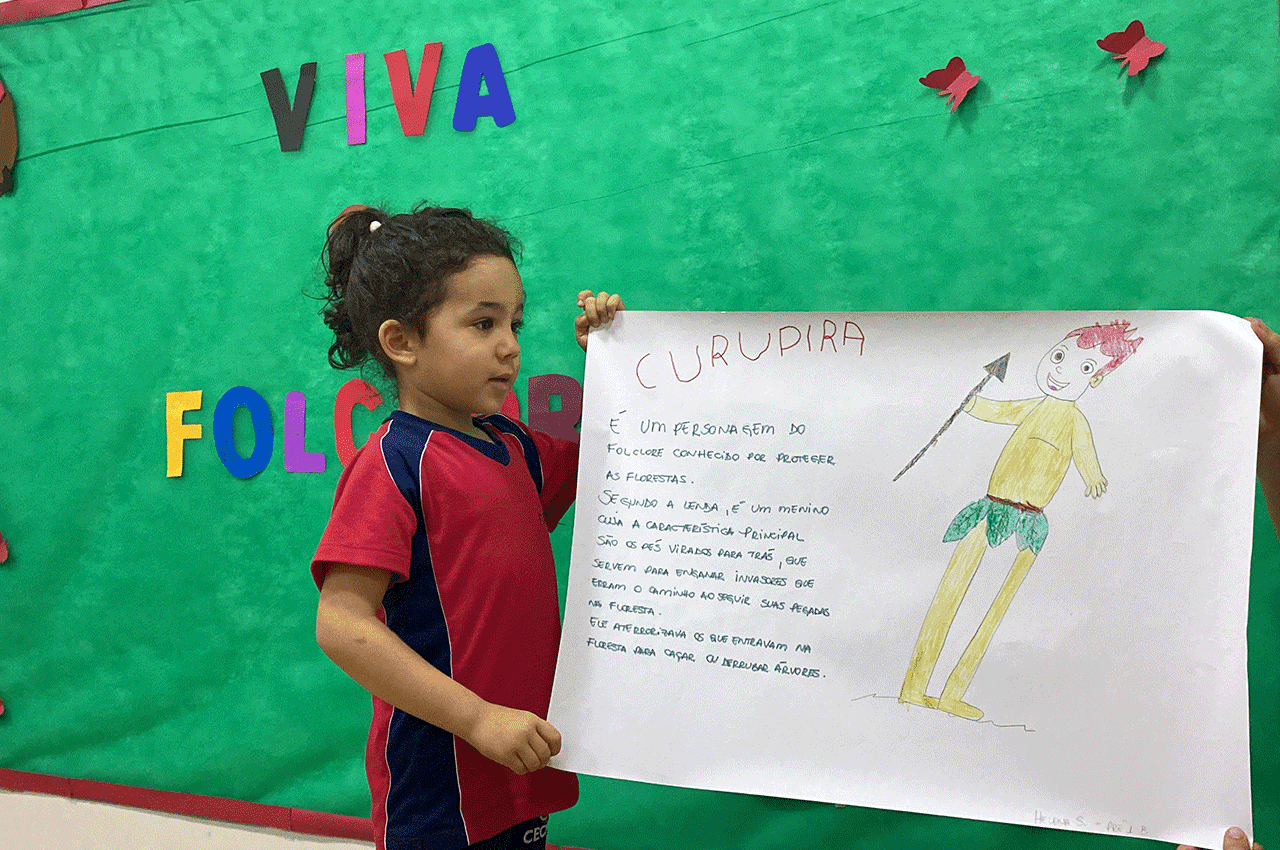 VIVA
FOLCLOR
CURUPIRA
É UM PERSONAGEM DO
FOLCLORE CONHECIDO POR PROTEGER
AS FLORESTAS.
SEGUNDO A LENDA, É UM MENINO
CUJA A CARACTERÍSTICA PRINCIPAL
SÃO OS PÉS VIRADOS PARA TRÁS, QUE
SERVEM PARA ENGANAR INVASORES QUE
ERRAM O CAMINHO AO SEGUIR SUAS PEGADAS
NA FLORESTA.
ELE ATERRORIZAVA OS QUE ENTRAVAM NA
FLORESTA PARA CAÇAR OU DERRUBAR ÁRVORES.
HELENA S. - PRÉ 1 B
CEC